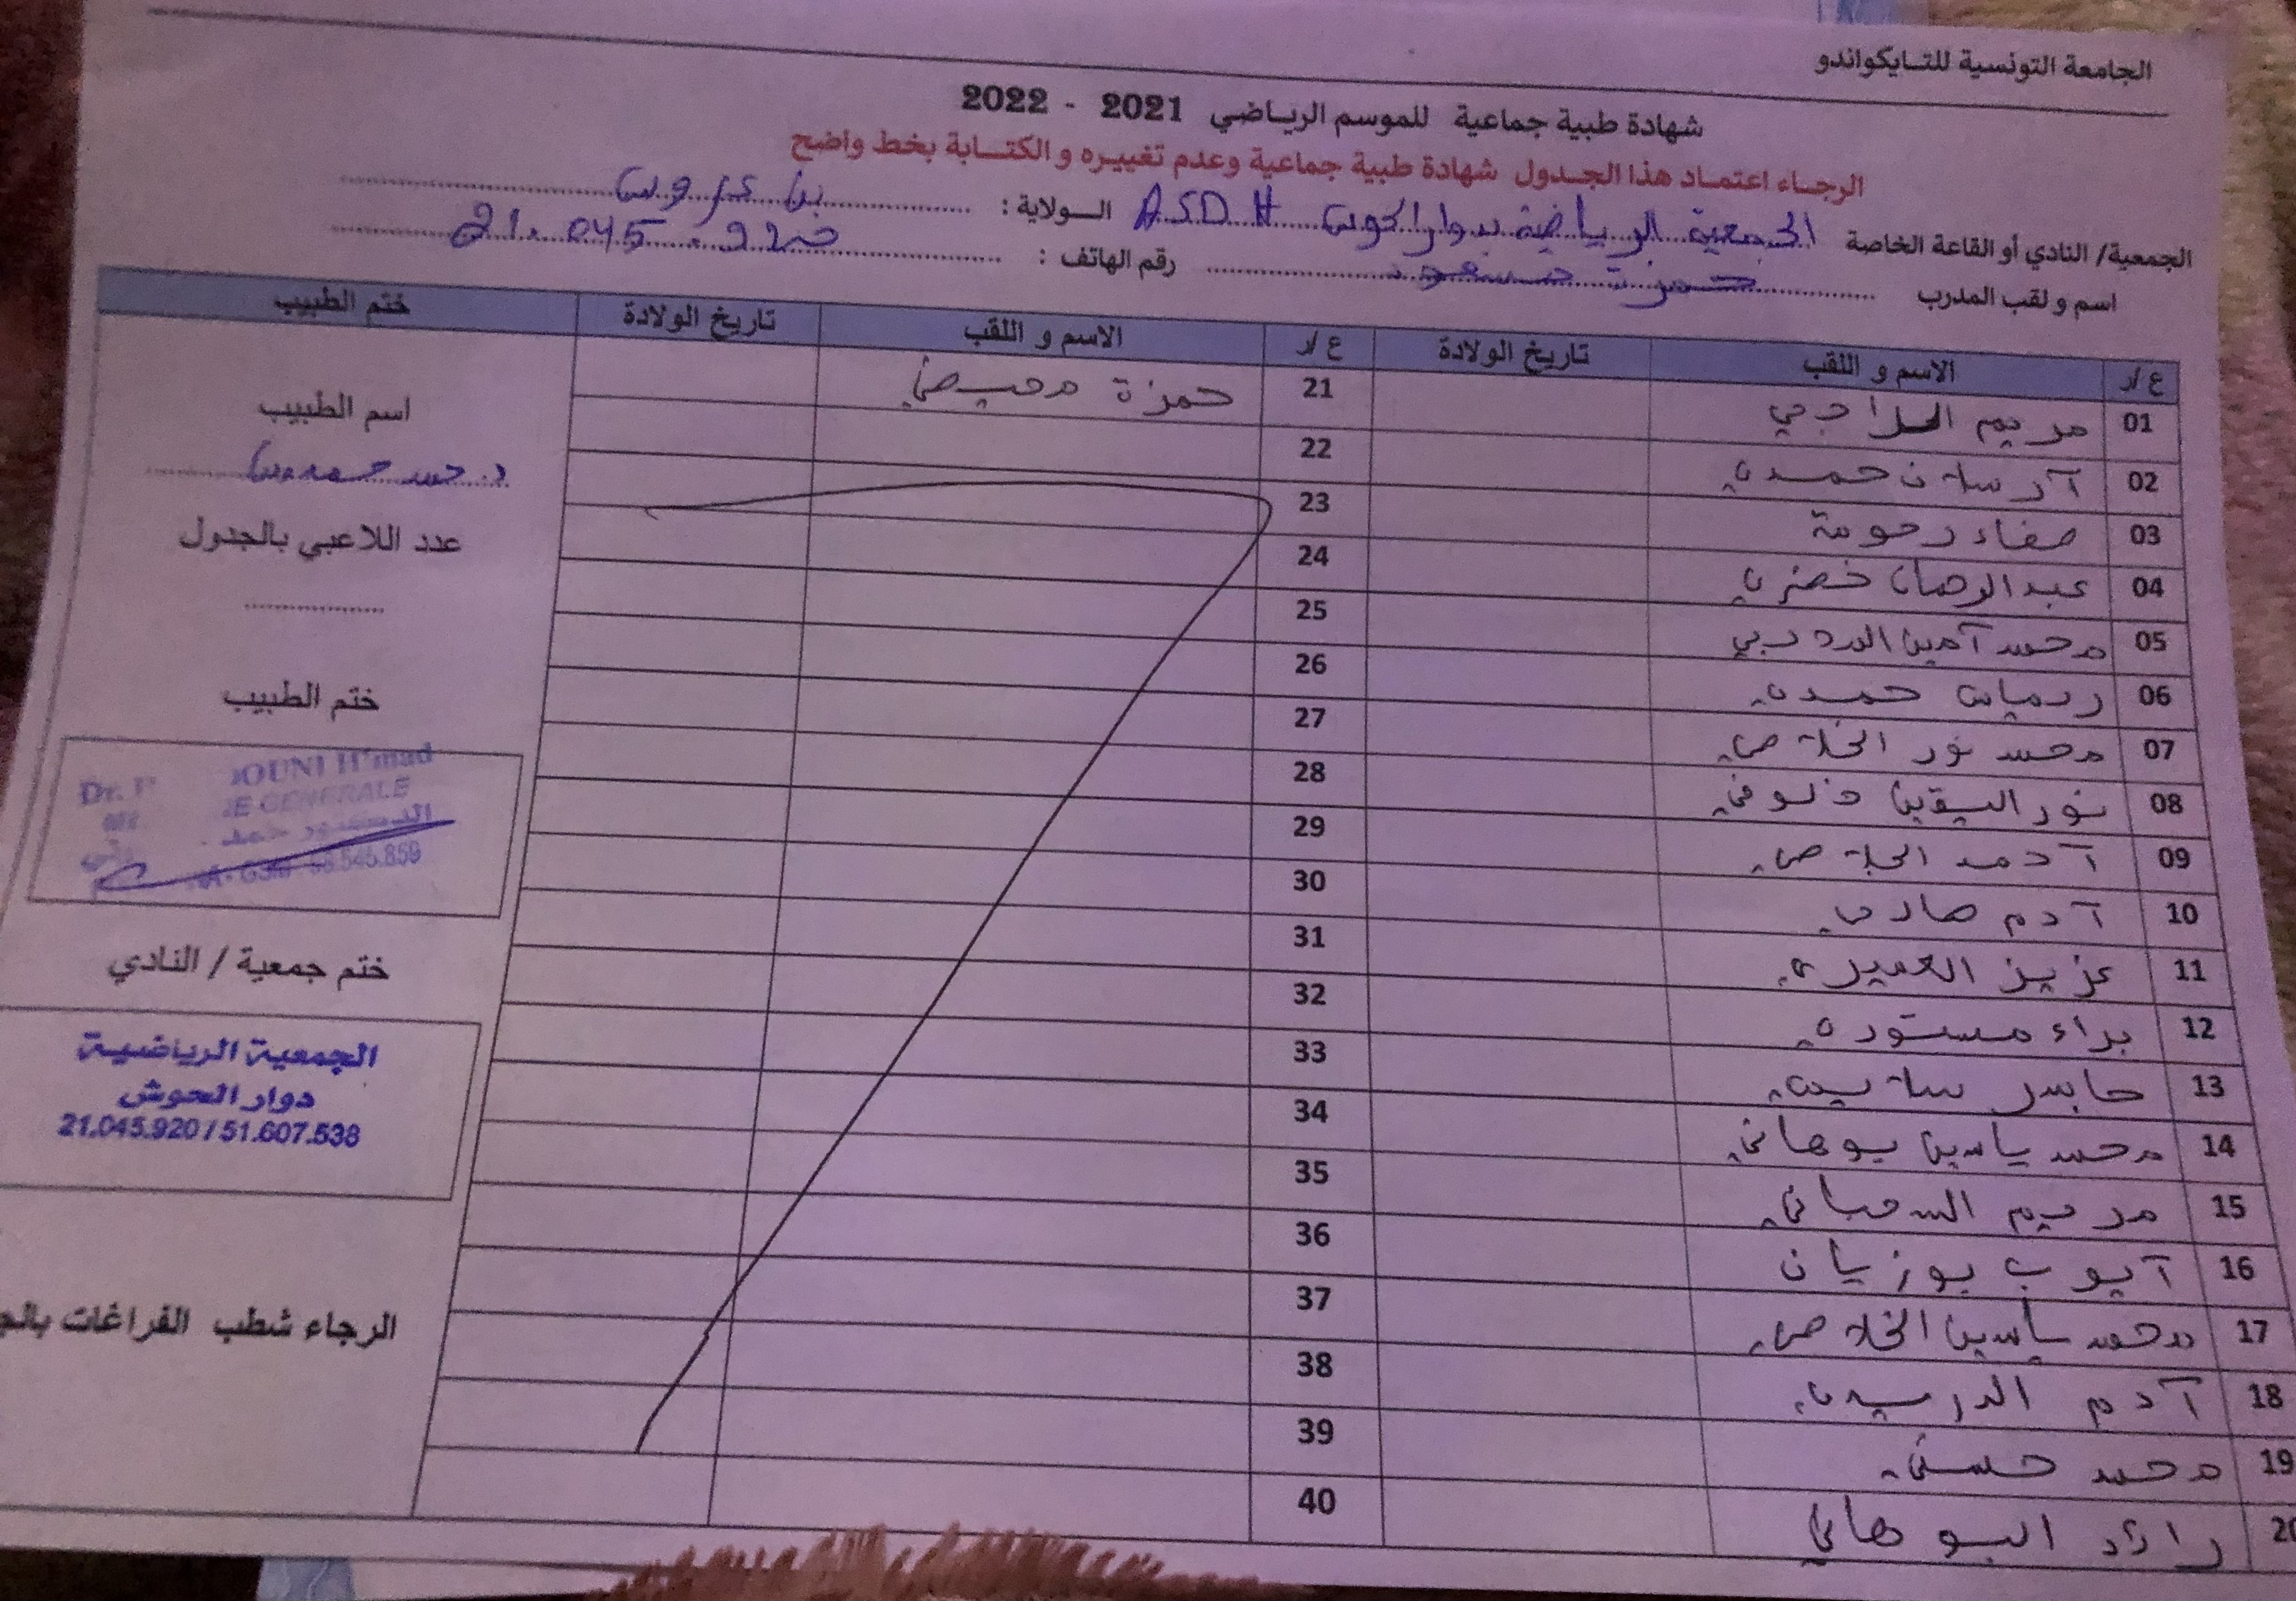 الجامعة التونسية للتايكواندو
شهادة طبية جماعية للموسم الرياضي 2021 - 2022
الرجاء اعتماد هذا الجدول شهادة طبية جماعية وعدم تغييره و الكتابة بخط واضح
الجمعية/ النادي أو القاعة الخاصة الجمعية الرياضية بدوار الحوش ASDH الولاية : بن عروس
اسم و لقب المدرب حمزة مسعود رقم الهاتف : 21.045.920
ع/ر الاسم و اللقب تاريخ الولادة ع/ر الاسم و اللقب تاريخ الولادة ختم الطبيب
01 مريم
02 آرسلان حمدي
03 صفاء رحومة
04 عبد الرحمان خضري
05 محمد آمين
06 ريماس حمدي
07 محمد نور الخلاصي
08 نور اليقين
09 الخلاصي
10 آدم
11 عزيز العميري
12 براء مستوري
13 جاسر
14 محمد ياسين بوهاني
15 مريم
16 آيوب بوزيان
17 محمد ياسين الخلاصي
18 آدم الدريدي
19 محمد حسني
20 رائد البوهاني
21 حمزة
22
23
24
25
26
27
28
29
30
31
32
33
34
35
36
37
38
39
40
اسم الطبيب
عدد اللاعبي بالجدول
ختم الطبيب
H'mad
GENERALE
545.859
ختم جمعية / النادي
الجمعية الرياضية
دوار الحوش
21.045.920 / 51.607.538
الرجاء شطب الفراغات